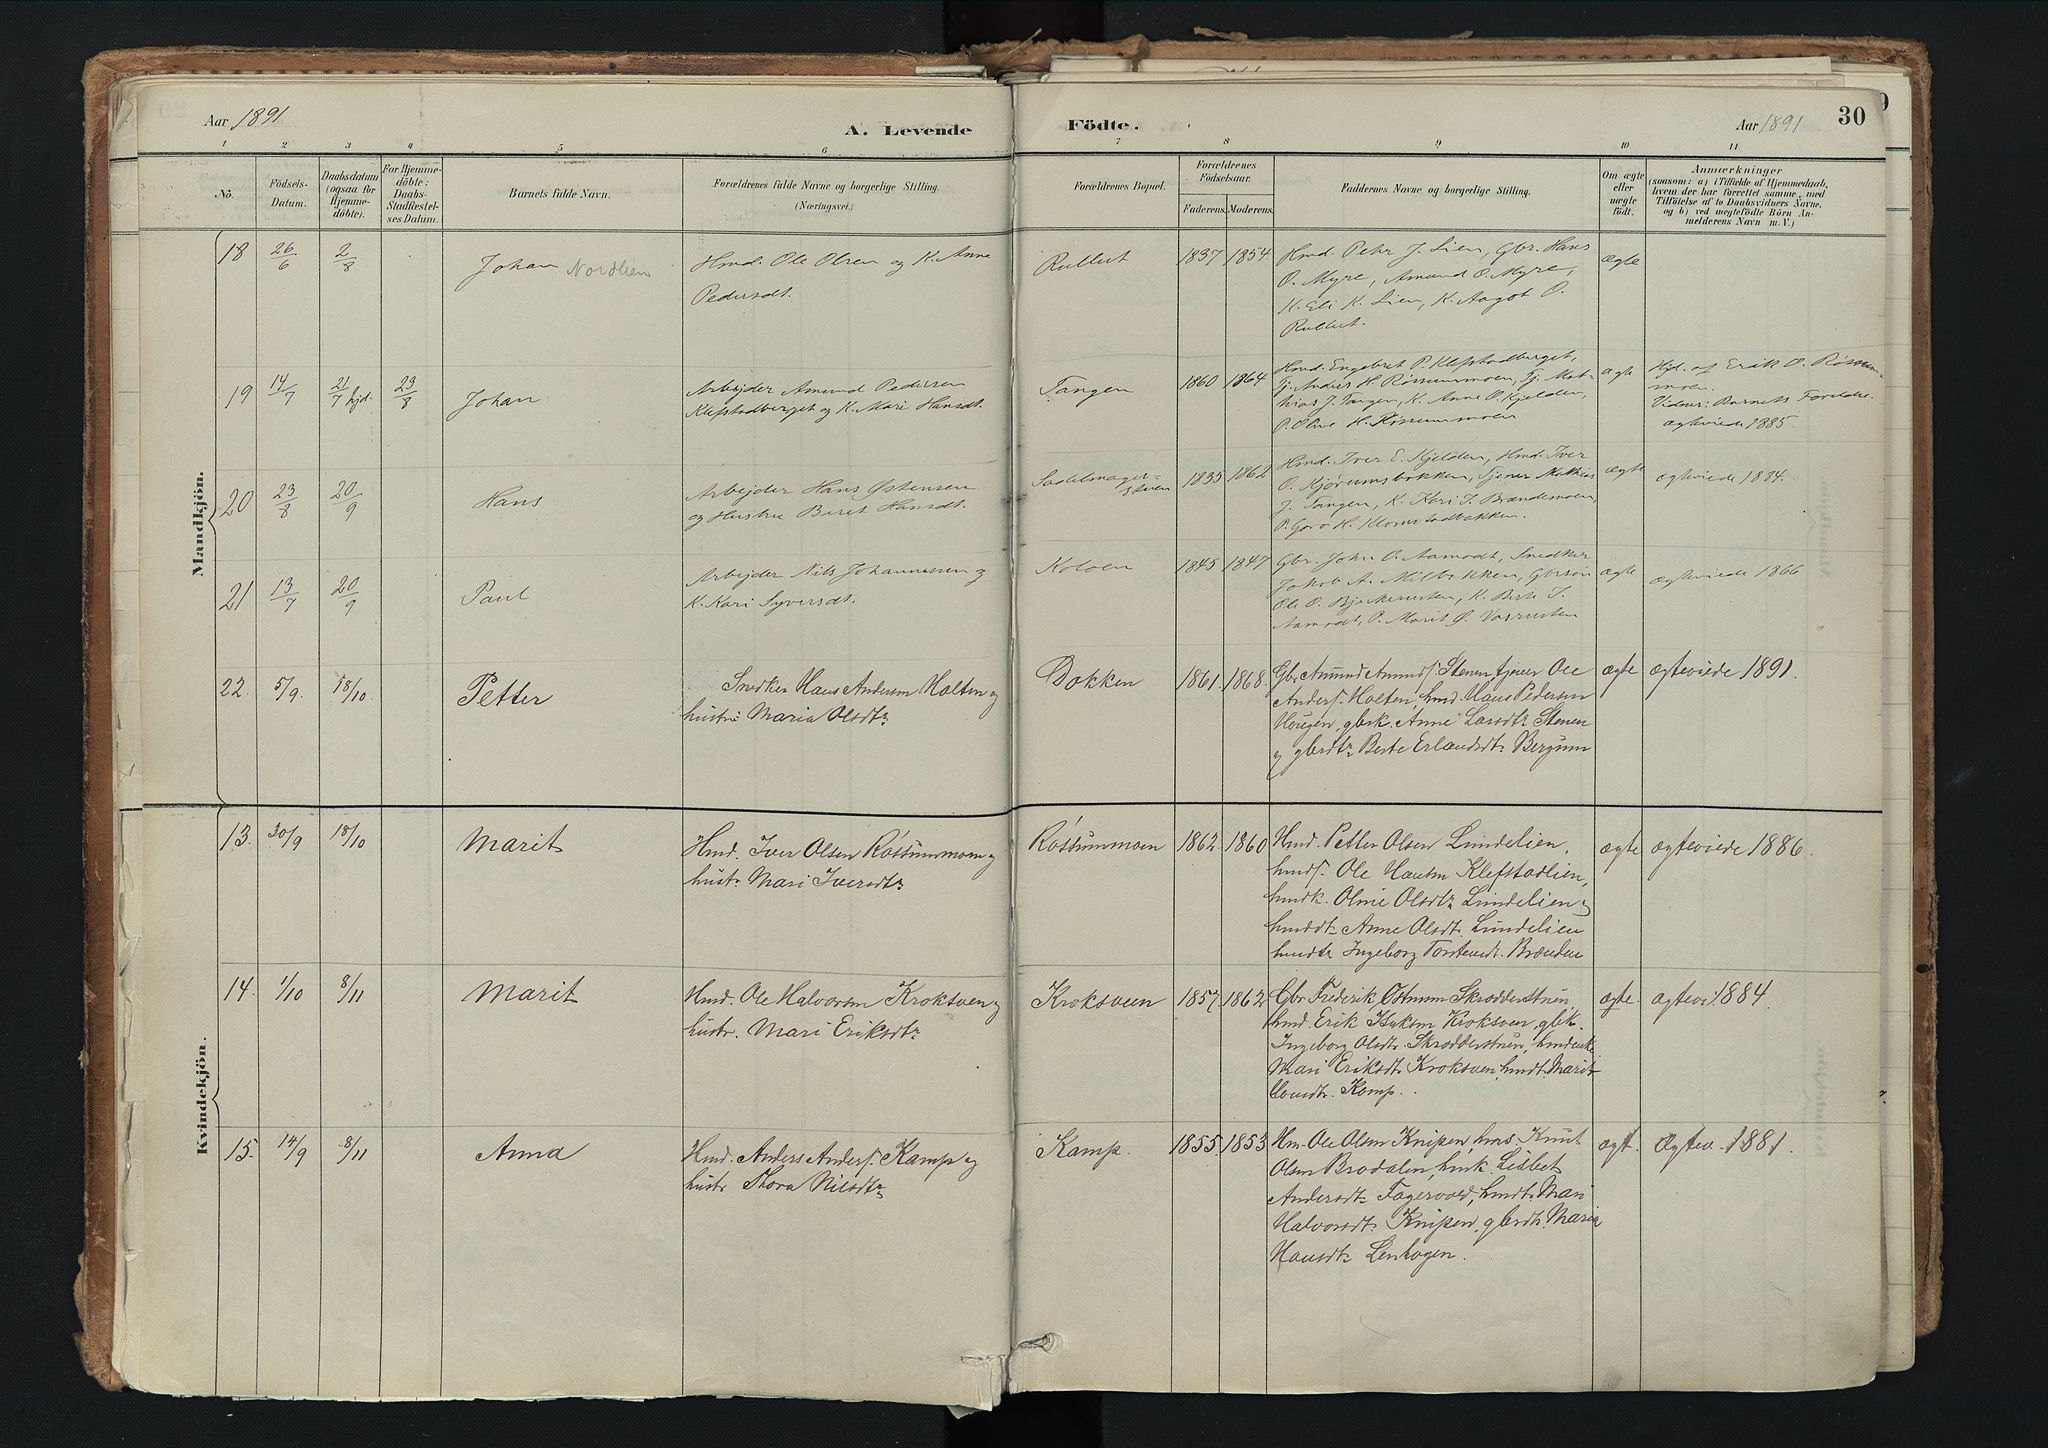 Aar 1891
A. Levende
Födte.
Aar 1891
30
1 2 3 4 5 6 7 8 9 10 11
No.
Födsels-
Datum.
Daabsdatum
(ogsaa for
Hjemme-
döbte).
For Hjemme-
döbte:
Daabs-
Stadfestel-
ses Datum.
Barnets fulde Navn.
Forældrenes fulde Navne og borgerlige Stilling.
(Næringsvei.)
Forældrenes Bopæl.
Forældrenes
Födselsaar.
Faderens. Moderens.
Faddernes Navne og borgerlige Stilling.
Om ægte
eller
uægte
födt.
Anmærkninger
(saasom: a) i Tilfælde af Hjemmedaab,
hvem der har forrettet samme, med
Tilföielse af to Daabsvidners Navne,
og b) ved uægtefödte Börn An-
melderens Navn m. V.)
Mandkjön.
18 26/6 2/8 Johan Nordlien
Hmd. Ole Olsen og K. Anne
Pedersdt.
Rullut 1837 1854
Hmd. Peter J. Lien, Gbr. Hans
O. Myre, Amund O. Myre,
K. Eli K. Lien, K. Aagot O.
Rullut.
ægte
19 14/7 21/7 hjd. 23/8 Johan
Arbejder Amund Pedersen
Klefstadberget og K. Mari Hansdt.
Tangen 1860 1864
Hmd. Engebret P. Klefstadberget,
Tj. Anders H. Røssummoen, Tj. Mat-
hias J. Tangen, K. Anne O. Kjelden,
P. Oline H. Røssummoen
ægte
Hjd. af Erik O. Røssum-
moen.
Vidner: Barnets Forældre.
ægteviede 1885.
20 23/8 20/9 Hans
Arbejder Hans Østensen
og Hustru Berit Hansdt.
Sadelmager-
stuen 1835 1862
Hmd. Iver E. Kjelden, Hmd. Iver
O. Kjørumsbakken, Tjener Mathias
J. Tangen, K. Kari I. Brændemoen,
P. Goro H. Klomstadbakken.
ægte
ægteviede 1884.
21 13/7 20/9 Paul
Arbejder Nils Johannessen og
K. Kari Syversdt.
Koloen 1845 1847
Gbr. John O. Aamodt, Snedker
Jakob A. Milbakken, Gbrsøn
Ole O. Bjerkerusten, K. Berte I.
Aamodt, P. Marit O. Vasrusten
ægte
ægteviede 1866
22. 5/9. 18/10. Petter
Snedker Hans Andersen Holten og
hustru Maria Olsdtr
Dokken 1861. 1868.
Gbr Amund Amunds. Stenen, tjener Ole
Anders. Holten, hmd. Hans Pedersen
Haugen, gbrk. Anne Larsdtr Stenen
og gbrdtr Berte Erlandsdtr Bergum
ægte
ægteviede 1891.
Kvindekjön.
13. 30/9 18/10 Marit
Hmd. Iver Olsen Røssummoen og
hustr. Mari Iversdtr
Røssummoen 1862. 1860
Hmd. Petter Olsen Lindelien,
hmds. Ole Hansen Klefstadlien,
hmdk. Oline Olsdtr Lindelien og
hmddtr Anne Olsdt. Lindelien
hmdtr Ingeborg Torstensdt. Brænden
ægte
ægteviede 1886.
14. 1/10 8/11 Marit
Hmd. Ole Halvorsen Kroksveen og
hustr. Mari Eriksdtr
Kroksveen 1857. 1862.
Gbr Frederik Skrædderstuen,
hmd. Erik Kroksveen, gbk.
Ingeborg Olsdtr. Skrædderstuen, hmdenke
Mari Eriksdtr Kroksveen, hmdt. Marit
Kamp.
ægte.
ægtevi. 1884.
15. 14/9 8/11 Anna
Hmd. Anders Anders. Kamp og
hustr Thora Nilsdtr
Kamp. 1855. 1853
Hm. Ole Olsen Knipen, hms. Knut
Olsen Brodalen, hmk. Lisbet
Andersdtr Fagervold, hmdt. Mari
Halvorsdtr Knipen, gbrdtr. Maria
Hansdtr Lenhagen.
ægt.
Ægtev. 1881.